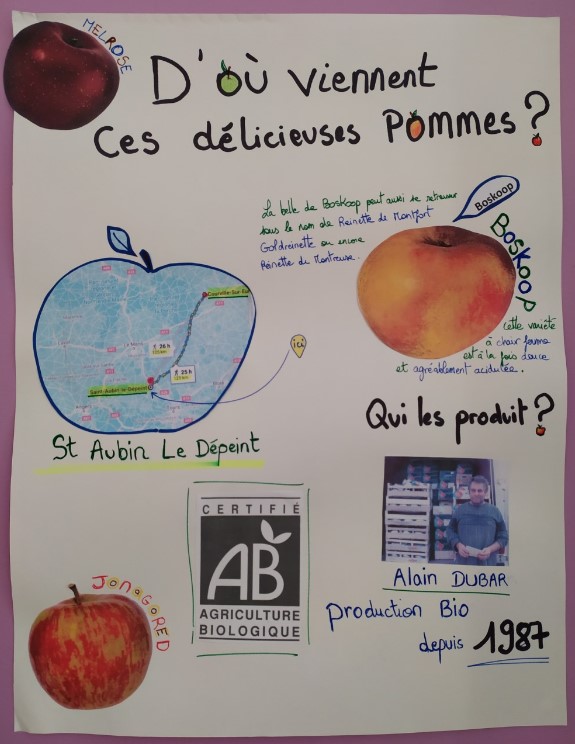 MELROSE
D'où viennent
Ces délicieuses Pommes ?
La belle de Boskoop peut aussi se retrouver
sous le nom de Reinette de Montfort
Goldreinette ou encore
Reinette de Montreuse.
Boskoop
BOSKOOP
Cette variété
à chair ferme
est à la fois douce
et agréablement acidulée.
Courville-Sur-Eure
26 h
25 h
Saint-Aubin-le-Dépeint
ici
St Aubin Le Dépeint
Qui les produit ?
CERTIFIÉ
AB
AGRICULTURE
BIOLOGIQUE
Alain DUBAR
production Bio
depuis 1987
JONAGORED